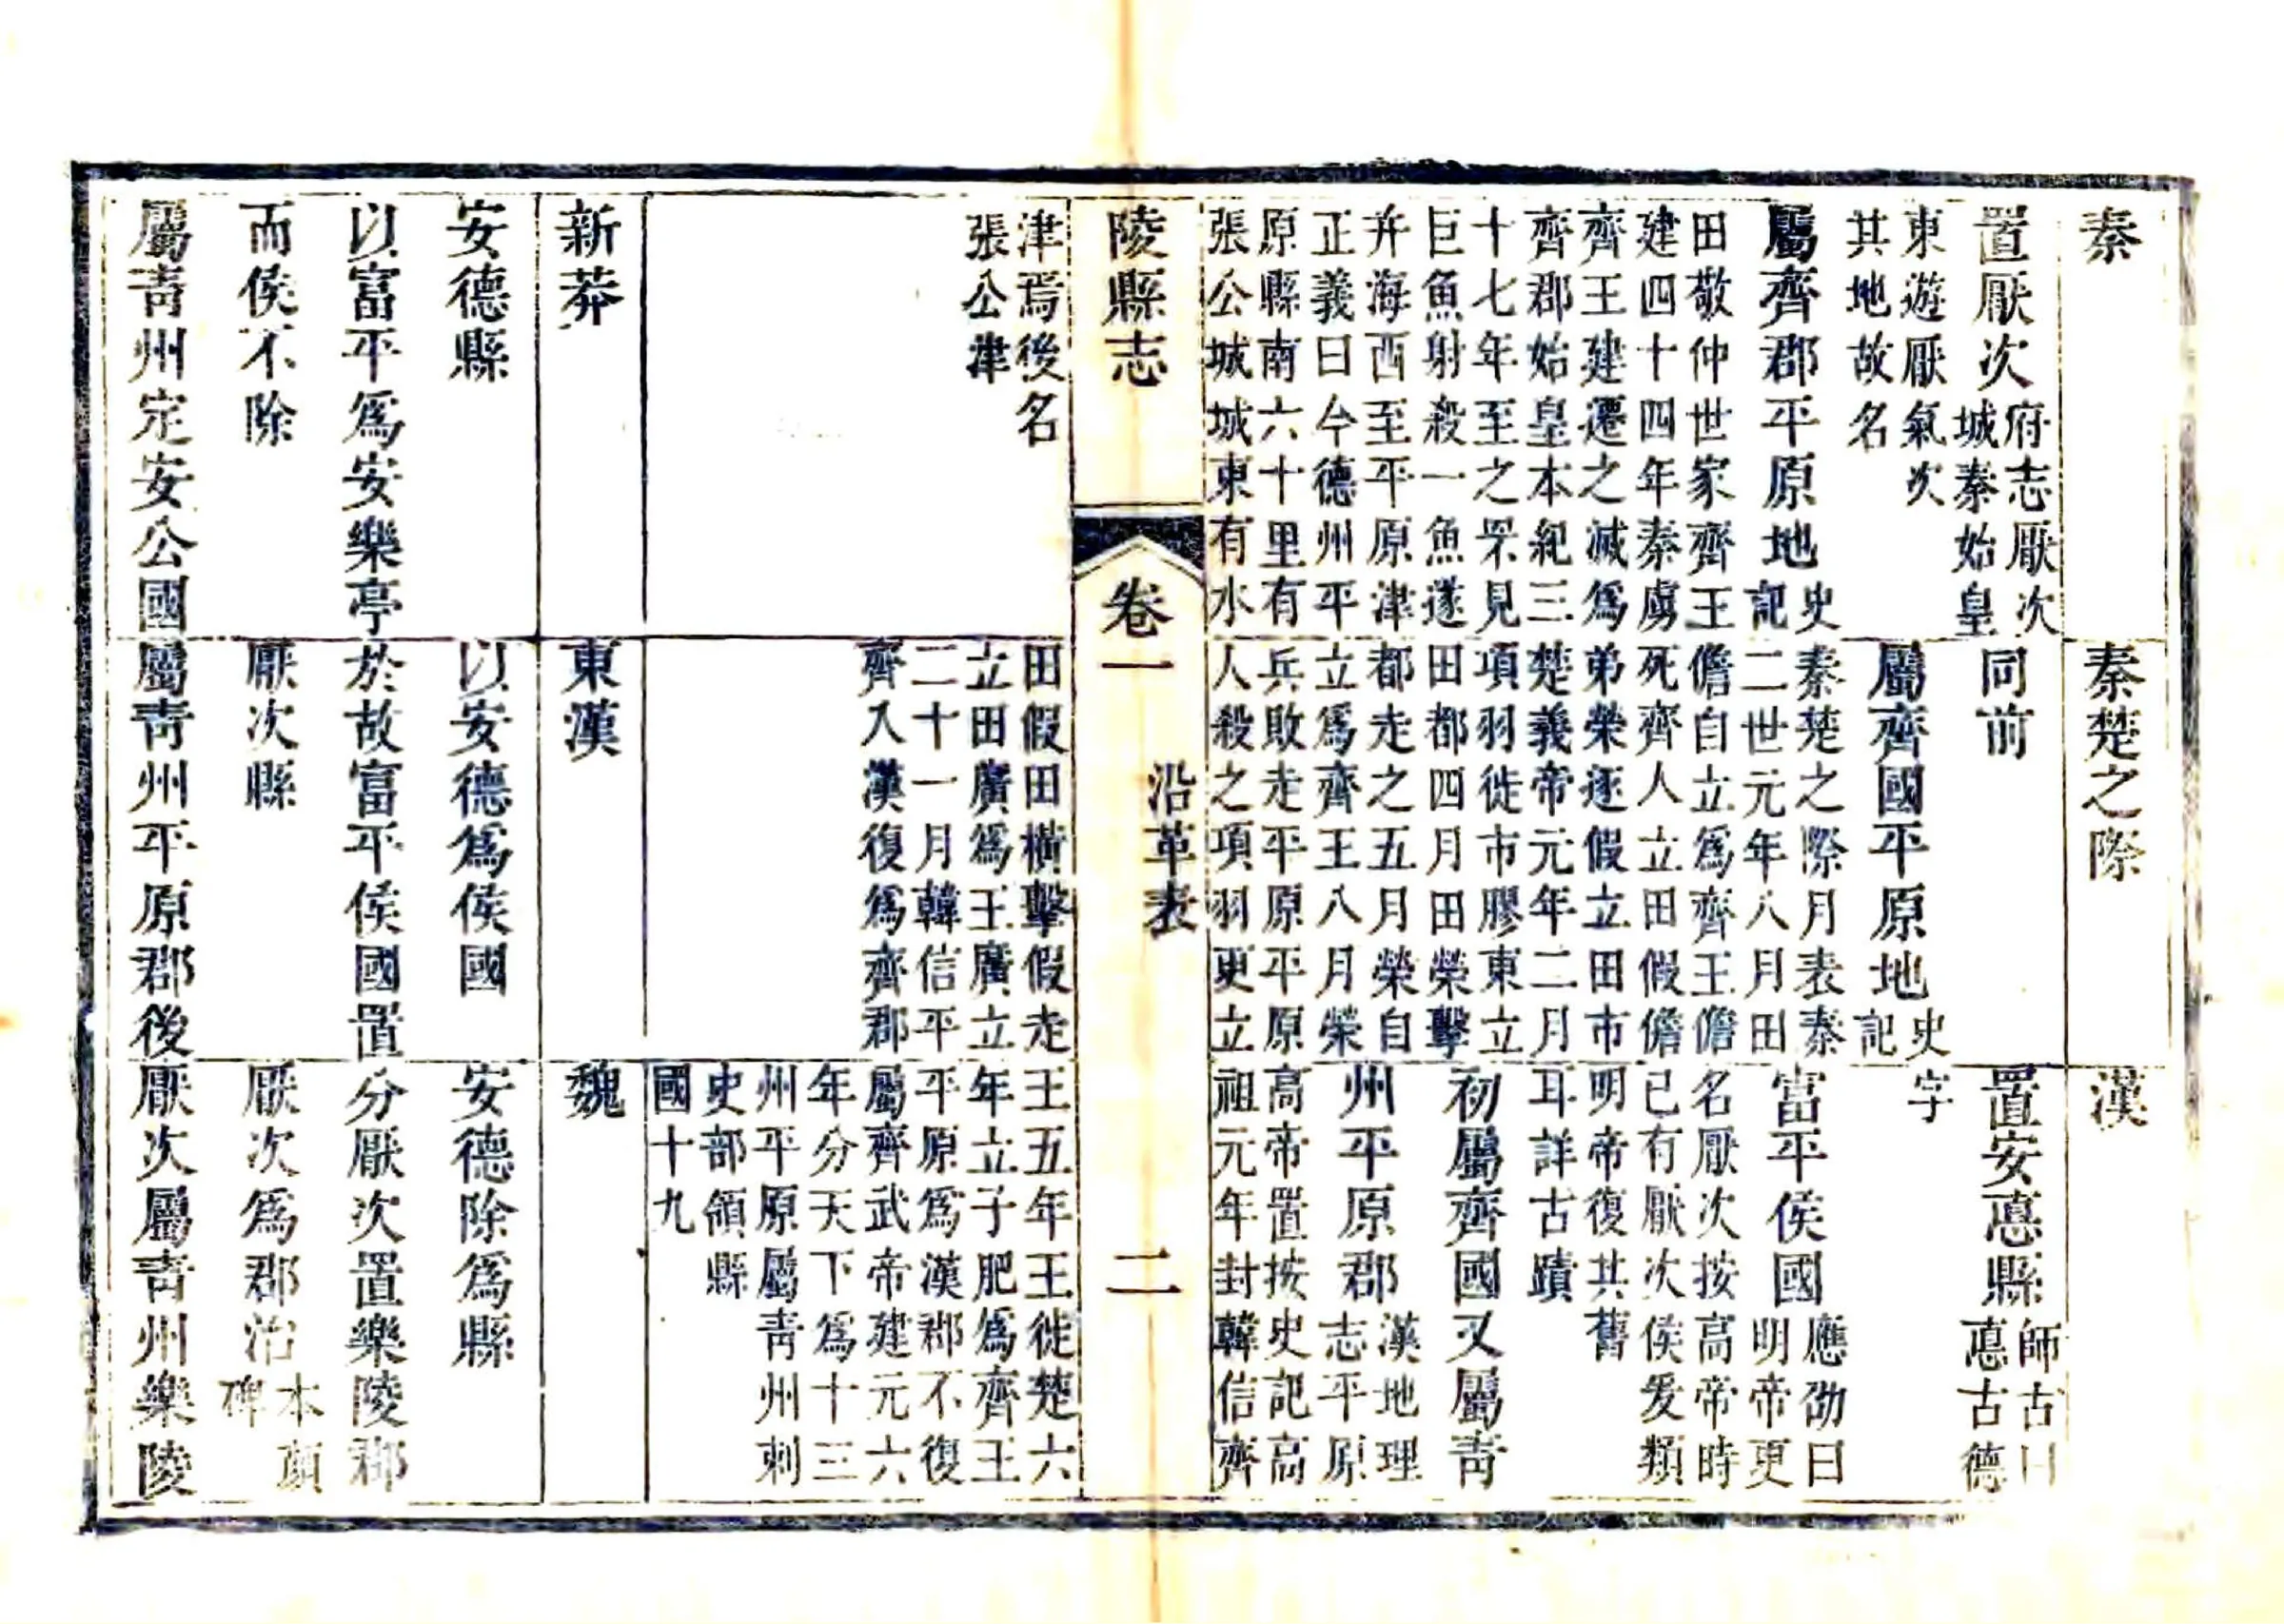 秦
置厭次
府志厭次
城秦始皇
東遊厭氣次
其地故名
屬齊郡平原地
史
記
田敬仲世家齊王
建四十四年秦虜
齊王建遷之滅爲
齊郡始皇本紀三
十七年至之罘見
巨魚射殺一魚遂
并海西至平原津
正義曰今德州平
原縣南六十里有
張公城城東有水
秦楚之際
同前
屬齊國平原地
史
記
秦楚之際月表秦
二世元年八月田
儋自立爲齊王儋
死齊人立田假儋
弟榮逐假立田市
楚義帝元年二月
項羽徙市膠東立
田都四月田榮擊
都走之五月榮自
立爲齊王八月榮
兵敗走平原平原
人殺之項羽更立
漢
置安悳縣
師古曰
悳古德
字
富平侯國
應劭曰
明帝更
名厭次按高帝時
已有厭次侯爰類
明帝復其舊
耳詳古蹟
初屬齊國又屬青
州平原郡
漢地理
志平原
高帝置按史記高
祖元年封韓信齊
陵縣志
卷一
沿革表
二
津焉後名
張公津
田假田橫擊假走
立田廣爲王廣立
二十一月韓信平
齊入漢復爲齊郡
王五年王徙楚六
年立子肥爲齊王
平原爲漢郡不復
屬齊武帝建元六
年分天下爲十三
州平原屬青州刺
史部領縣
國十九
新莽
安德縣
以富平爲安樂亭
而侯不除
屬青州定安公國
東漢
以安德爲侯國
於故富平侯國置
厭次縣
屬青州平原郡後
魏
安德除爲縣
分厭次置樂陵郡
厭次爲郡治
本顏
碑
厭次屬青州樂陵